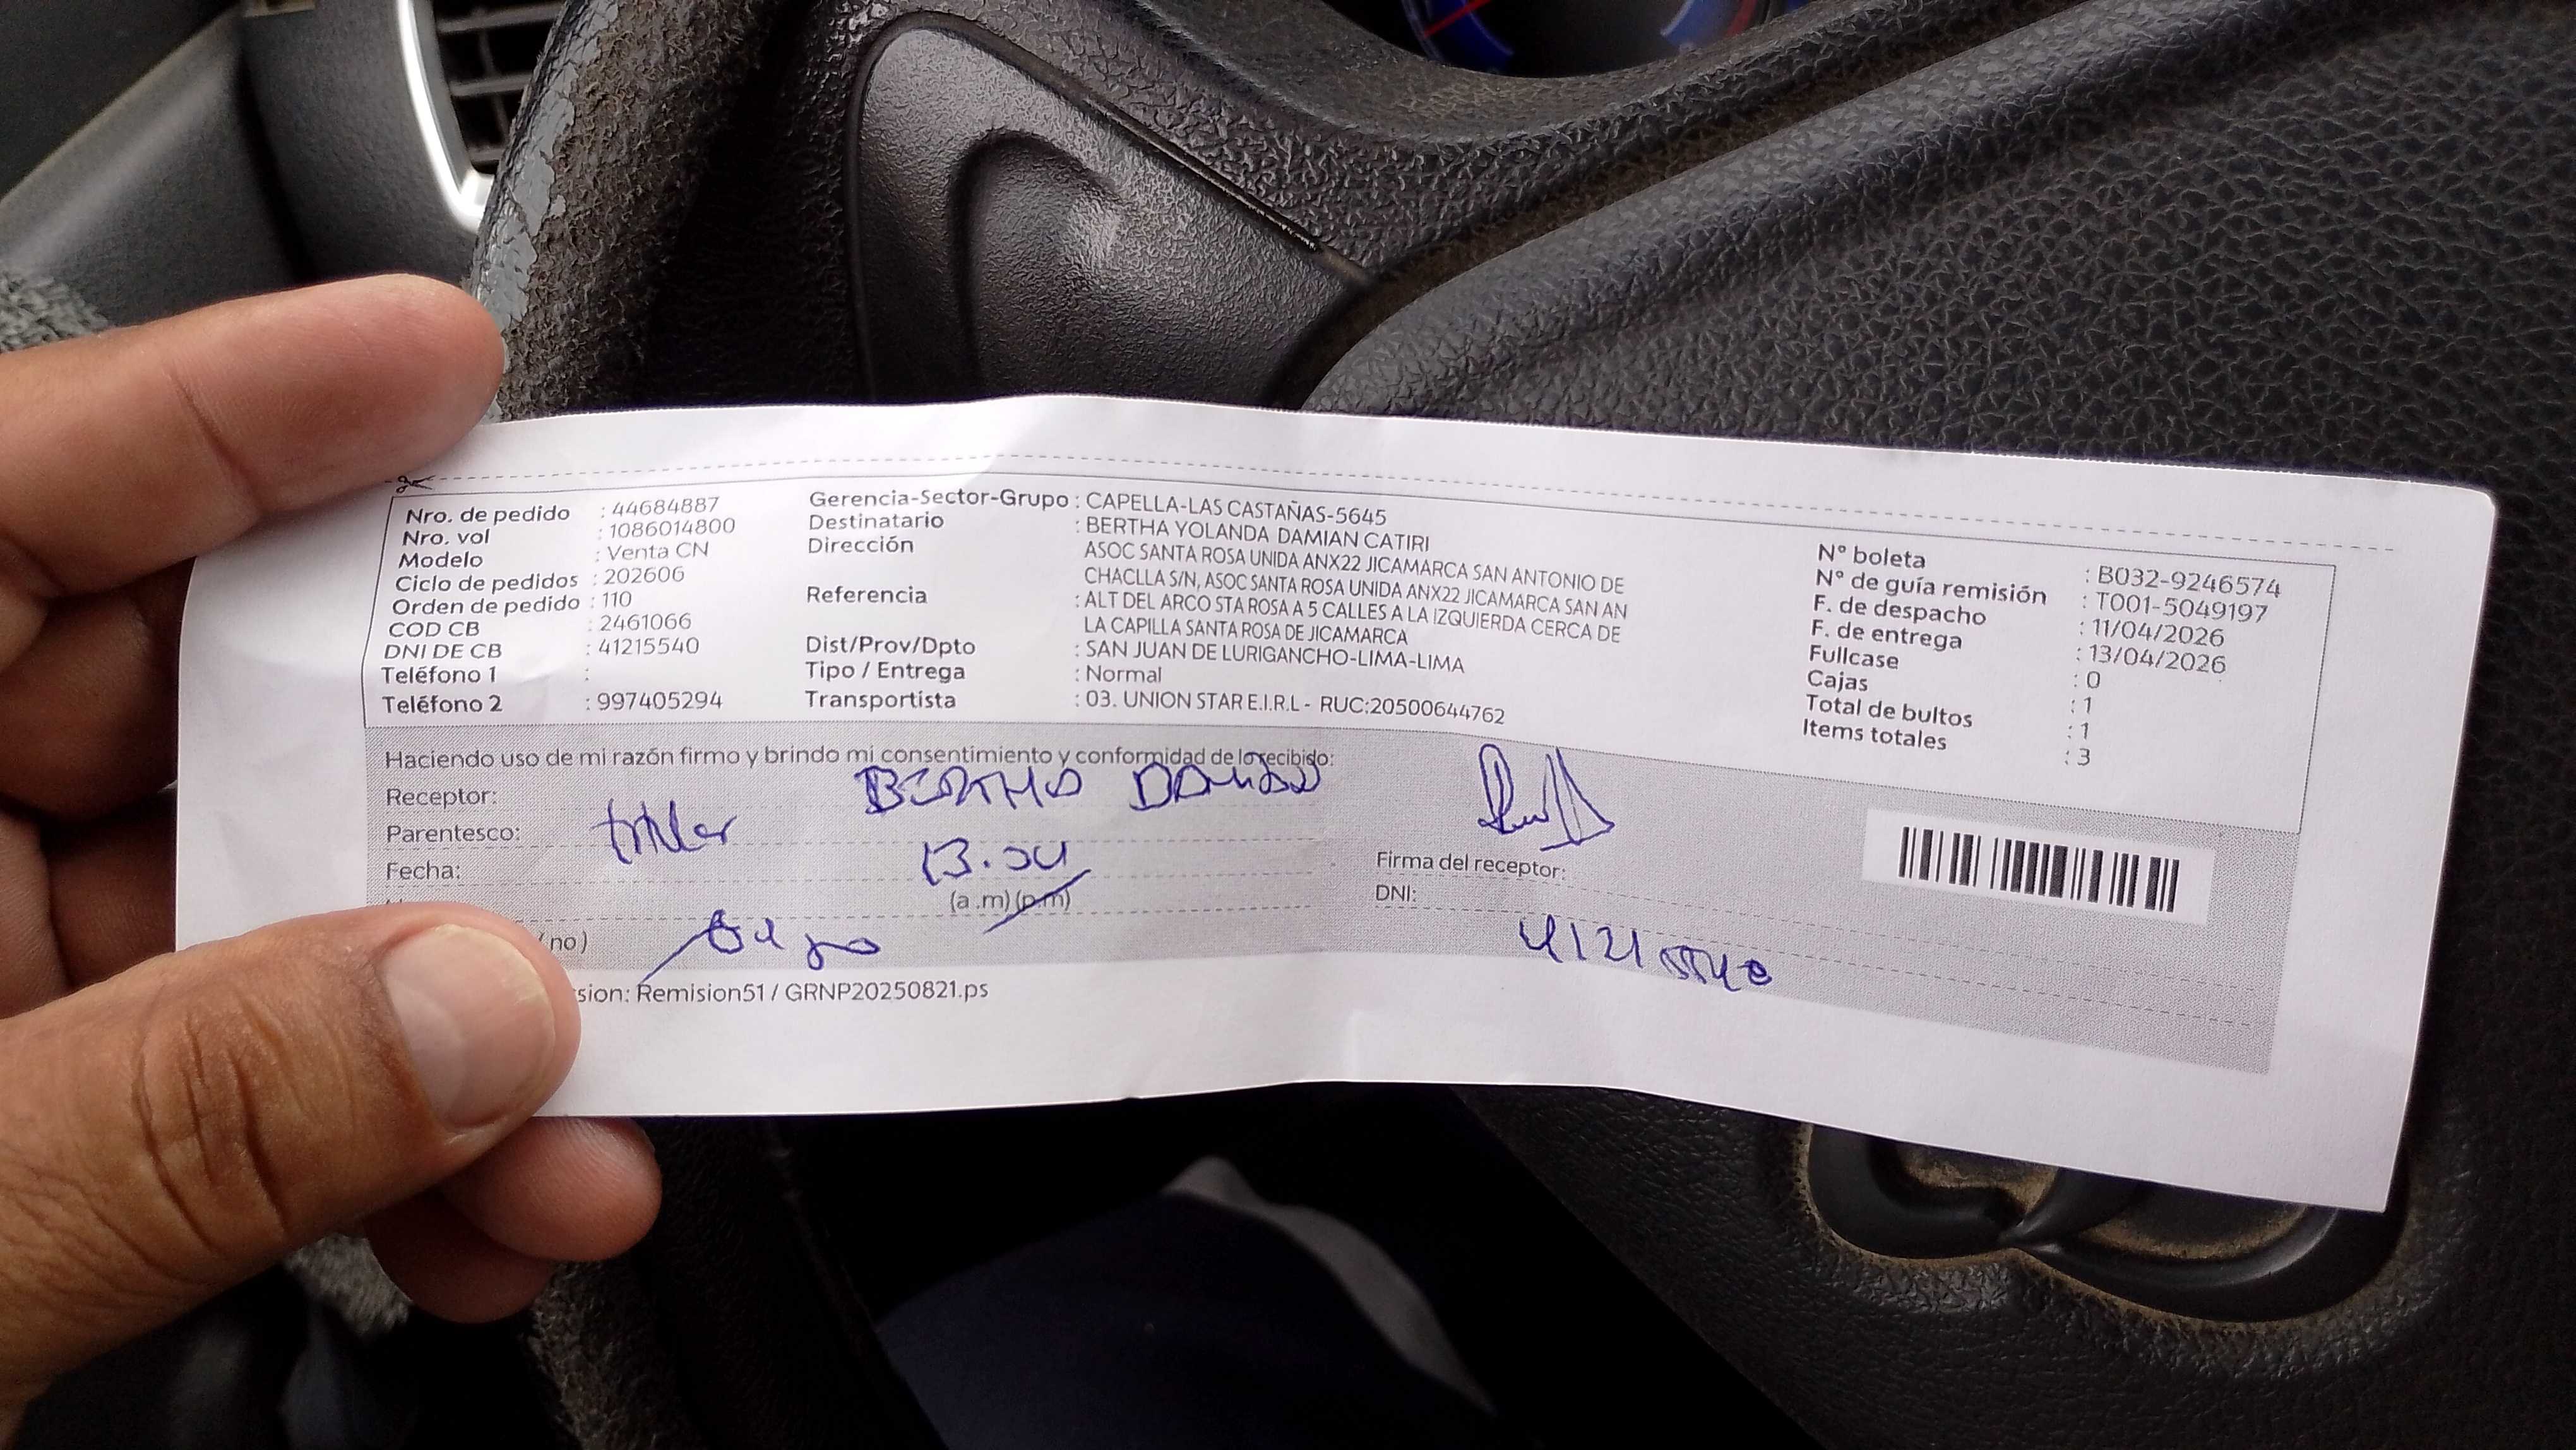 Nro. de pedido : 44684887
Nro. vol : 1086014800
Modelo : Venta CN
Ciclo de pedidos : 202606
Orden de pedido : 110
COD CB : 2461066
DNI DE CB : 41215540
Teléfono 1 :
Teléfono 2 : 997405294
Gerencia-Sector-Grupo : CAPELLA-LAS CASTAÑAS-5645
Destinatario : BERTHA YOLANDA DAMIAN CATIRI
Dirección ASOC SANTA ROSA UNIDA ANX22 JICAMARCA SAN ANTONIO DE
CHACLLA S/N, ASOC SANTA ROSA UNIDA ANX22 JICAMARCA SAN AN
Referencia : ALT DEL ARCO STA ROSA A 5 CALLES A LA IZQUIERDA CERCA DE
LA CAPILLA SANTA ROSA DE JICAMARCA
Dist/Prov/Dpto : SAN JUAN DE LURIGANCHO-LIMA-LIMA
Tipo / Entrega : Normal
Transportista : 03. UNION STAR E.I.R.L - RUC:20500644762
N° boleta : B032-9246574
N° de guía remisión : T001-5049197
F. de despacho : 11/04/2026
F. de entrega : 13/04/2026
Fullcase : 0
Cajas : 1
Total de bultos : 1
Items totales : 3
Haciendo uso de mi razón firmo y brindo mi consentimiento y conformidad de lo recibido:
Receptor: BERTHA DAMIAN
Parentesco:
Fecha: 13.04
(a .m) (p.m)
(no)
Firma del receptor:
DNI: 41215540
sion: Remision51 / GRNP20250821.ps